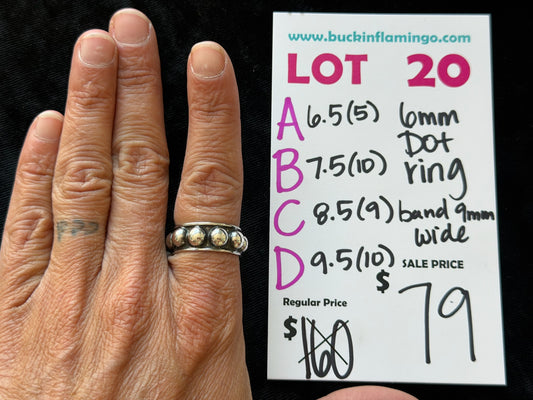 www.buckinflamingo.com
LOT 20
A 6.5(5) 6mm
Dot
B 7.5(10) ring
C 8.5(9) band 9mm
wide
D 9.5(10) SALE PRICE
$ 79
Regular Price
$ 160